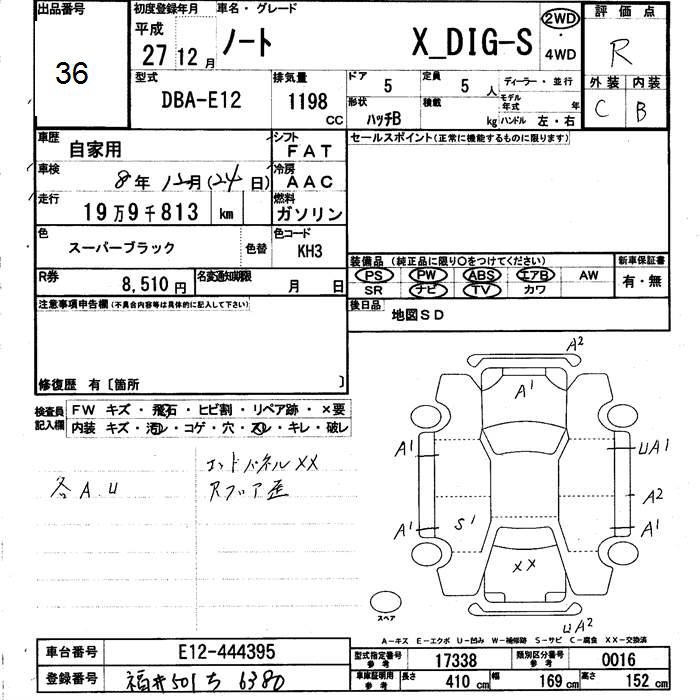 出品番号 初度登録年月 車名・グレード 2WD 評価点
平成
36 27 12月 ノート X_DIG-S ・ R
4WD
型式 排気量 ドア 5 定員 5人 ディーラー・並行 外装 内装
DBA-E12 1198 CC 形状 ハッチB 積載 kg モデル年式 年 C B
ハンドル 左・右
車歴 自家用 シフト FAT セールスポイント(正常に機能するものに限ります)
車検 8年12月(24日) 冷房 AAC
走行 19万9千813 km 燃料 ガソリン
色 スーパーブラック 色替 色コード KH3
装備品 (純正品に限り○をつけてください) 新車保証書
R券 8,510円 名変通知期限 月 日 PS PW ABS エアB AW 有・無
SR ナビ TV カワ
注意事項申告欄(不具合内容等は具体的に記入して下さい) 後日品 地図SD
修復歴 有〔箇所 〕
検査員記入欄 FW キズ・飛石・ヒビ割・リペア跡・×要
内装 キズ・汚レ・コゲ・穴・スレ・キレ・破レ
エンドパネルXX
各A.U Rフロア歪
A2
A1
A1 UA1
A2
A1 S1 A1
XX
スペア
UA2
A-キズ E-エクボ U-凹み W-補修跡 S-サビ C-腐食 XX-交換済
車台番号 E12-444395 型式指定番号 参考 17338 類別区分番号 参考 0016
登録番号 福井501ち6380 車庫証明用 参考 長さ 410 cm 幅 169 cm 高さ 152 cm